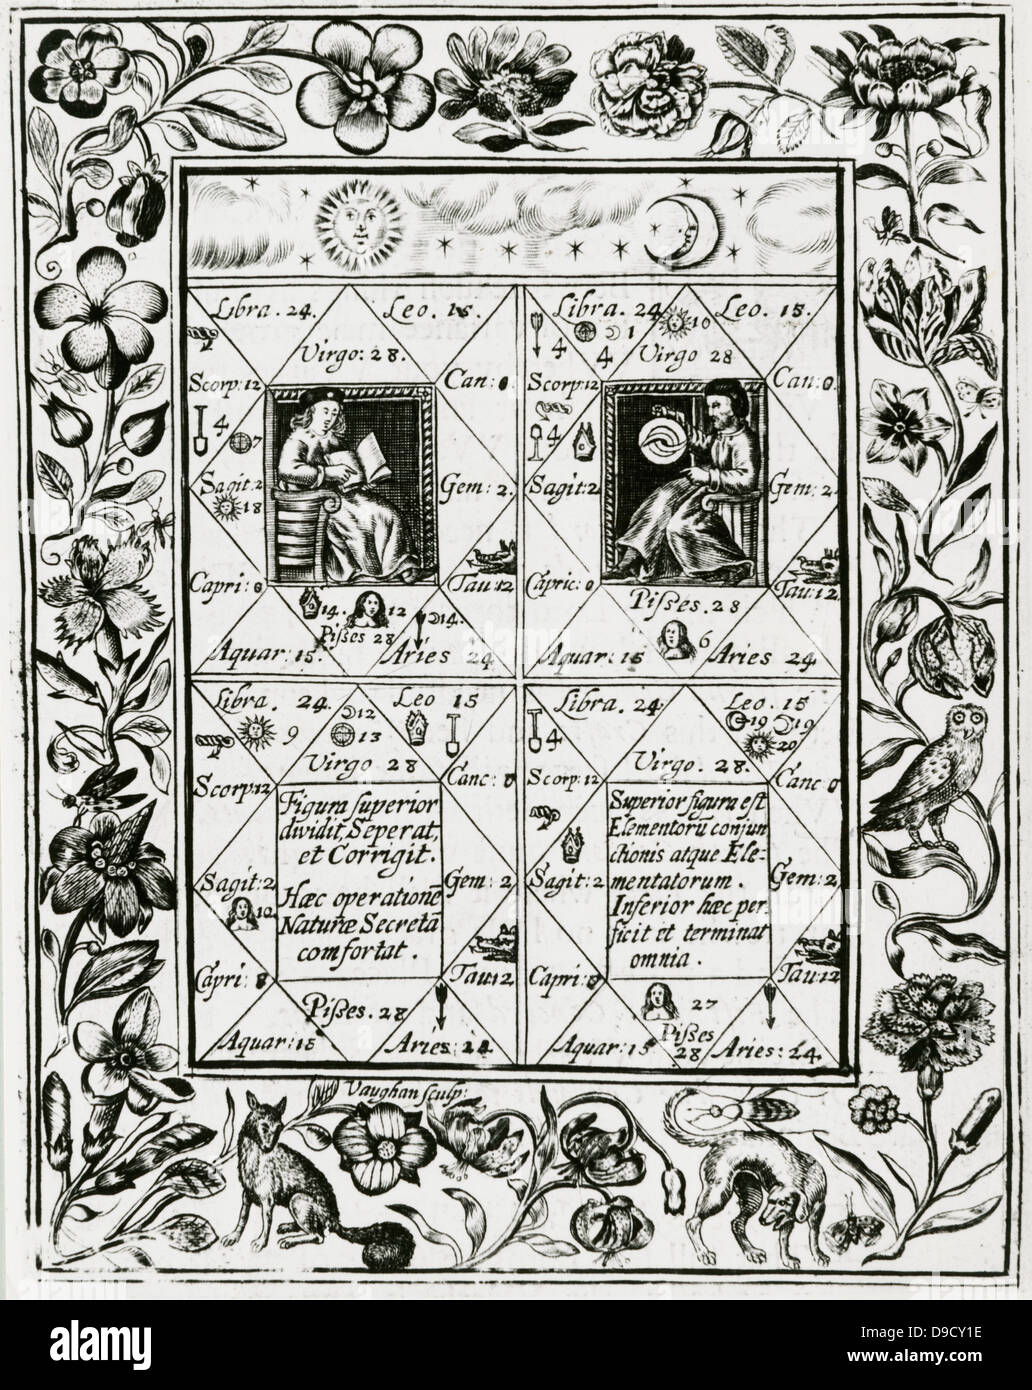 Libra . 24.
Leo . 15.
Virgo : 28.
Scorp: 12
Can: 0.
4
7
Sagit: 2
18
Gem : 2.
Capri : 0
Tau: 12
14.
12
14.
Pisses 28
Aquar : 15.
Aries 24
Libra. 24
Leo . 15.
4
1
10
4
Virgo 28
Scorp: 12
Can: 0.
4
Sagit: 2
Gem: 2
Capric: 0
Tau: 12
Pisses. 28
6
Aquar: 15
Aries 24
Libra . 24.
Leo 15
9
12
13
Virgo 28
Scorp: 12
Canc: 0
Figura superior
dividit, Seperat,
et Corrigit.
Hæc operationē
Naturæ Secretā
comfortat .
Sagit: 2
10
Gem : 2
Capri : 8
Tau: 12
Pisses . 28
Aquar: 15
Aries: 24
Libra. 24
Leo . 15
4
19
19
20
Virgo. 28.
Scorp: 12
Canc 0
Superior figura est
Elementorū conjun
ctionis atque Ele-
mentatorum .
Inferior hæc per
ficit et terminat
omnia .
Sagit: 2
Gem: 2
Capri: 0
Tau: 12
27
Pisses
28
Aquar: 15
Aries : 24.
Vaughan sculp:
alamy
alamy stock photo
D9CY1E
www.alamy.com